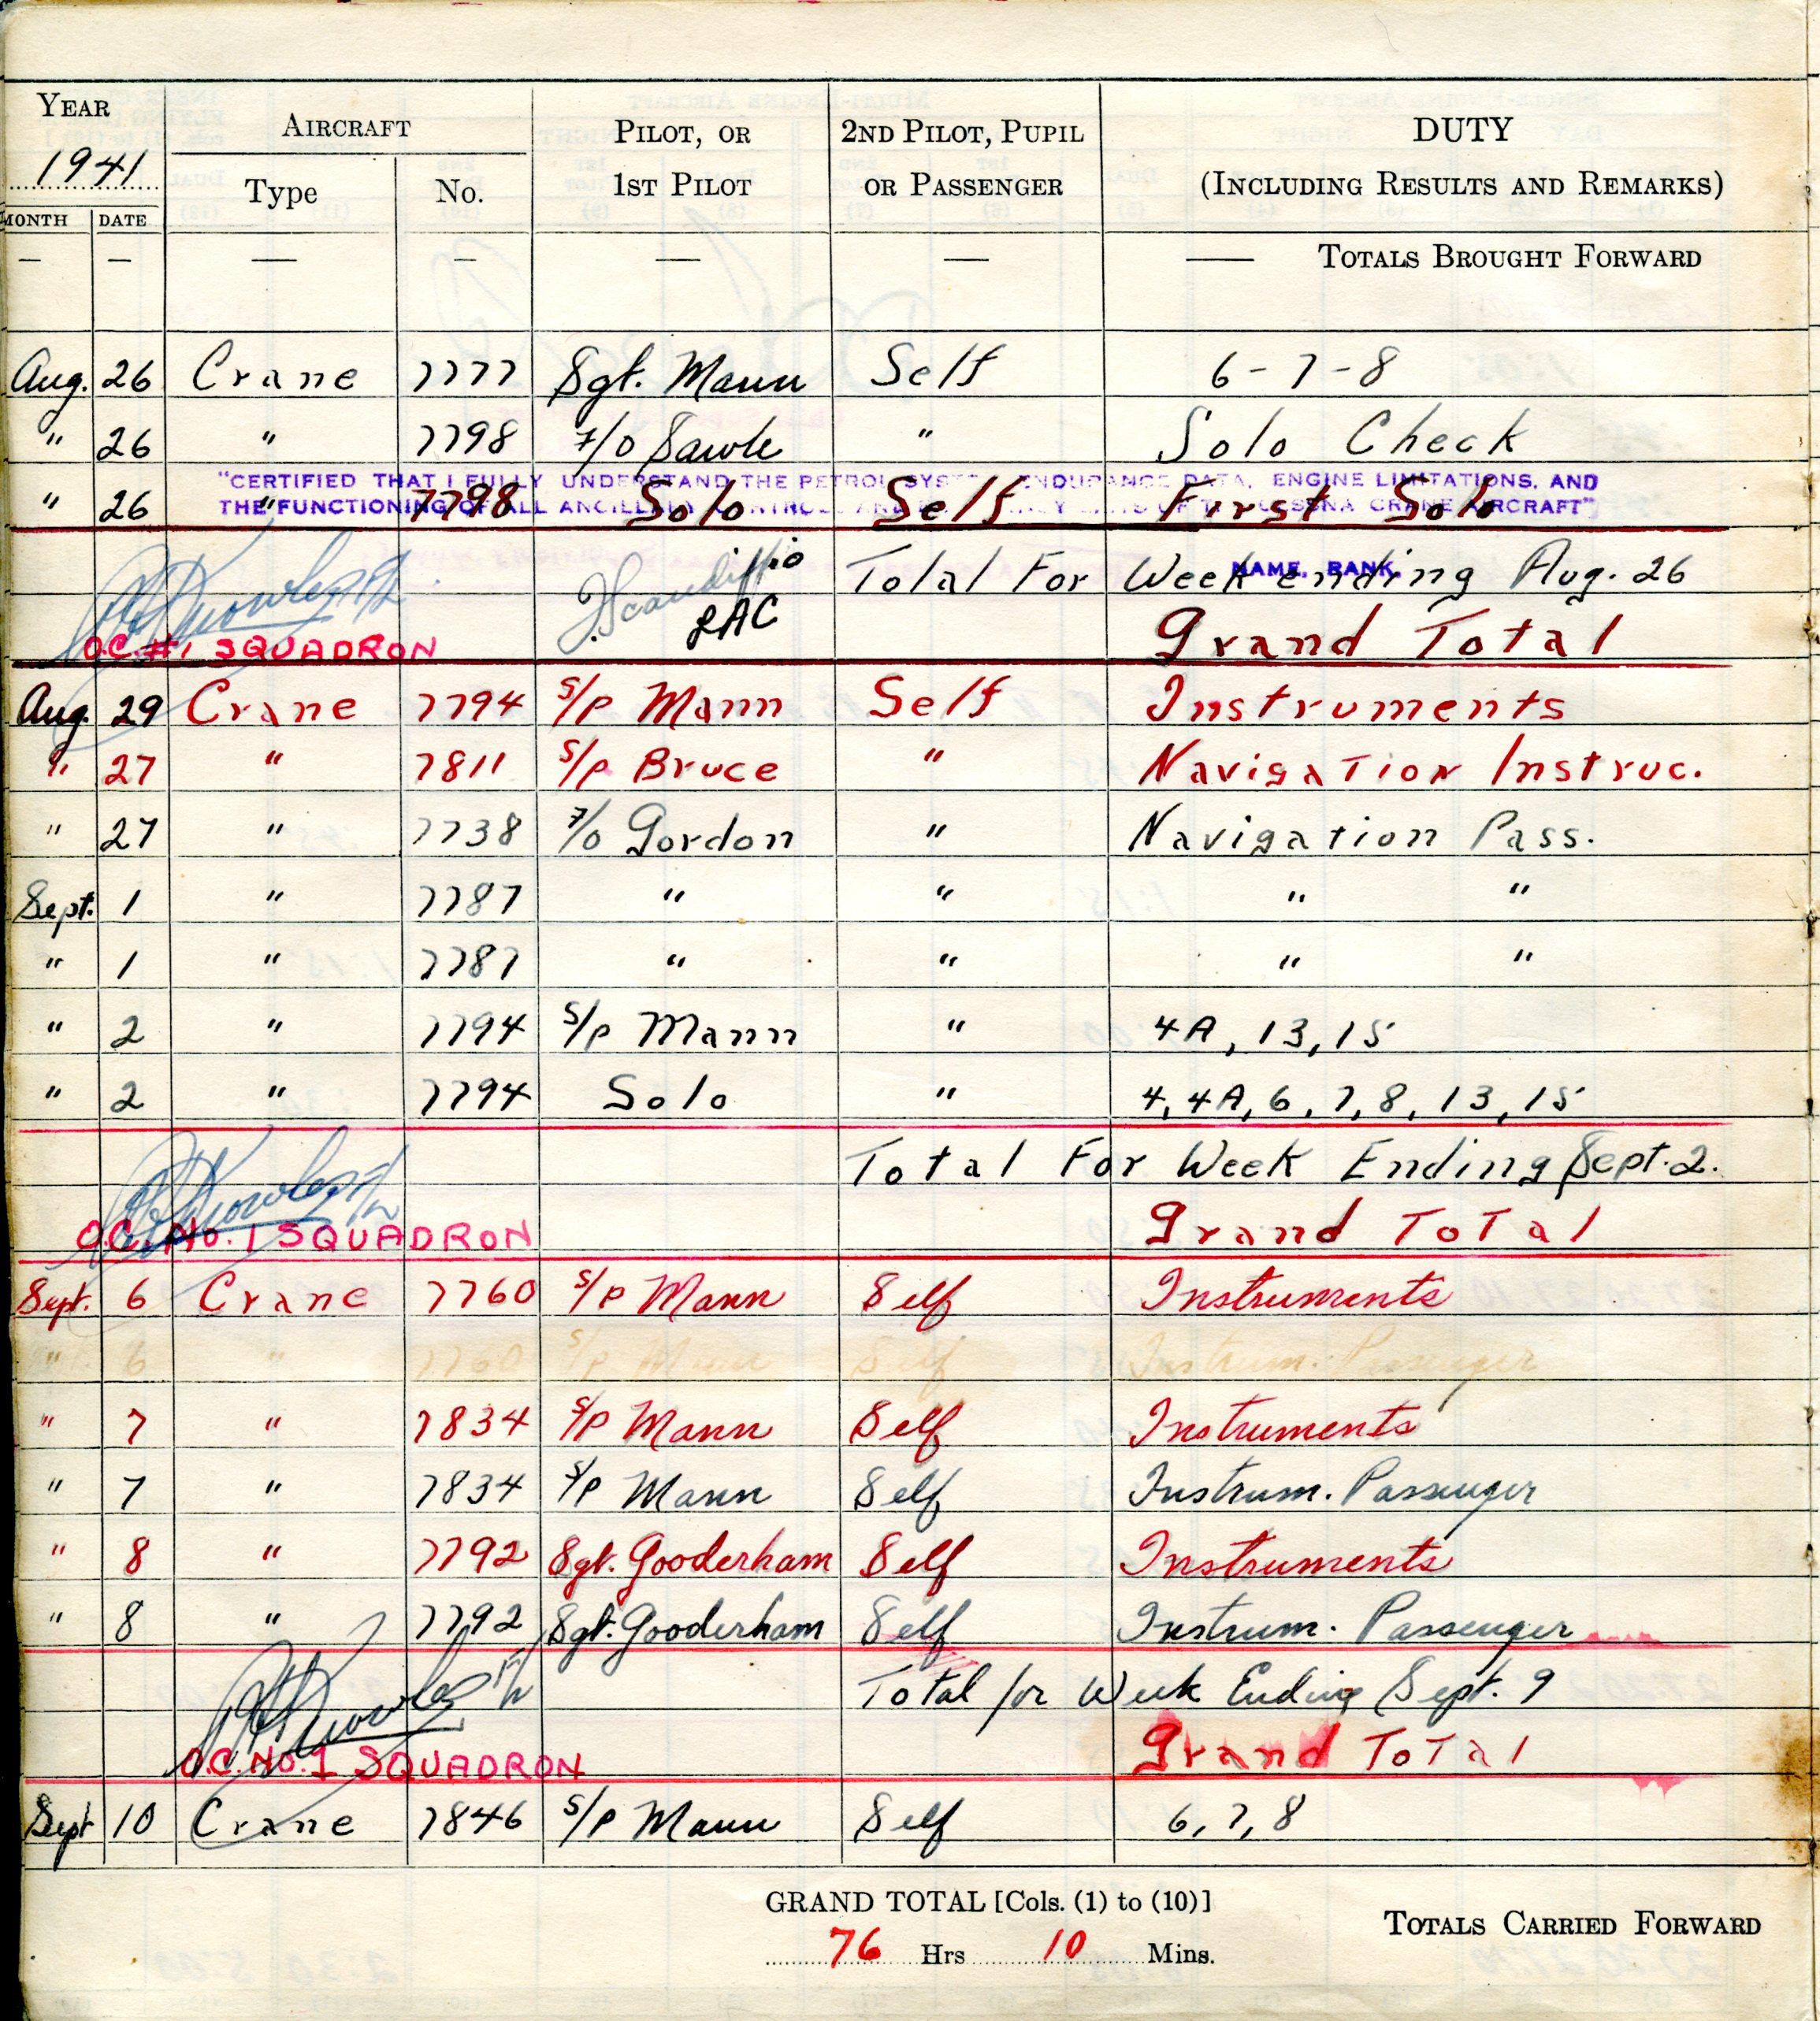 YEAR AIRCRAFT PILOT, OR 2ND PILOT, PUPIL DUTY
1941 Type No. 1ST PILOT OR PASSENGER (INCLUDING RESULTS AND REMARKS)
MONTH DATE
— — — — — — — TOTALS BROUGHT FORWARD
Aug. 26 Crane 7777 Sgt. Mann Self 6-7-8
" 26 " 7798 F/O Sawle " Solo Check
"CERTIFIED THAT I FULLY UNDERSTAND THE PETROL SYSTEM, ENDURANCE DATA, ENGINE LIMITATIONS, AND
" 26 " 7798 Solo Self First Solo
THE FUNCTIONING OF ALL ANCILLARY CONTROLS AND OF THE CESSNA CRANE AIRCRAFT"
Total For Week ending Aug. 26
NAME, RANK.
LAC Grand Total
O.C. #1 SQUADRON
Aug. 29 Crane 7794 S/P Mann Self Instruments
" 27 " 7811 S/P Bruce " Navigation Instruc.
" 27 " 7738 F/O Gordon " Navigation Pass.
Sept. 1 " 7787 " " " "
" 1 " 7787 " " " "
" 2 " 7794 S/P Mann " 4A, 13, 15
" 2 " 7794 Solo " 4, 4A, 6, 7, 8, 13, 15
Total For Week Ending Sept. 2.
O.C. No. 1 SQUADRON Grand Total
Sept. 6 Crane 7760 S/P Mann Self Instruments
" 6 " 7760 S/P Mann Self Instrum. Passenger
" 7 " 7834 S/P Mann Self Instruments
" 7 " 7834 S/P Mann Self Instrum. Passenger
" 8 " 7792 Sgt. Gooderham Self Instruments
" 8 " 7792 Sgt. Gooderham Self Instrum. Passenger
Total for Week Ending Sept. 9
O.C. No. 1 SQUADRON Grand Total
Sept 10 Crane 7846 S/P Mann Self 6, 7, 8
GRAND TOTAL [Cols. (1) to (10)]
TOTALS CARRIED FORWARD
76 Hrs 10 Mins.